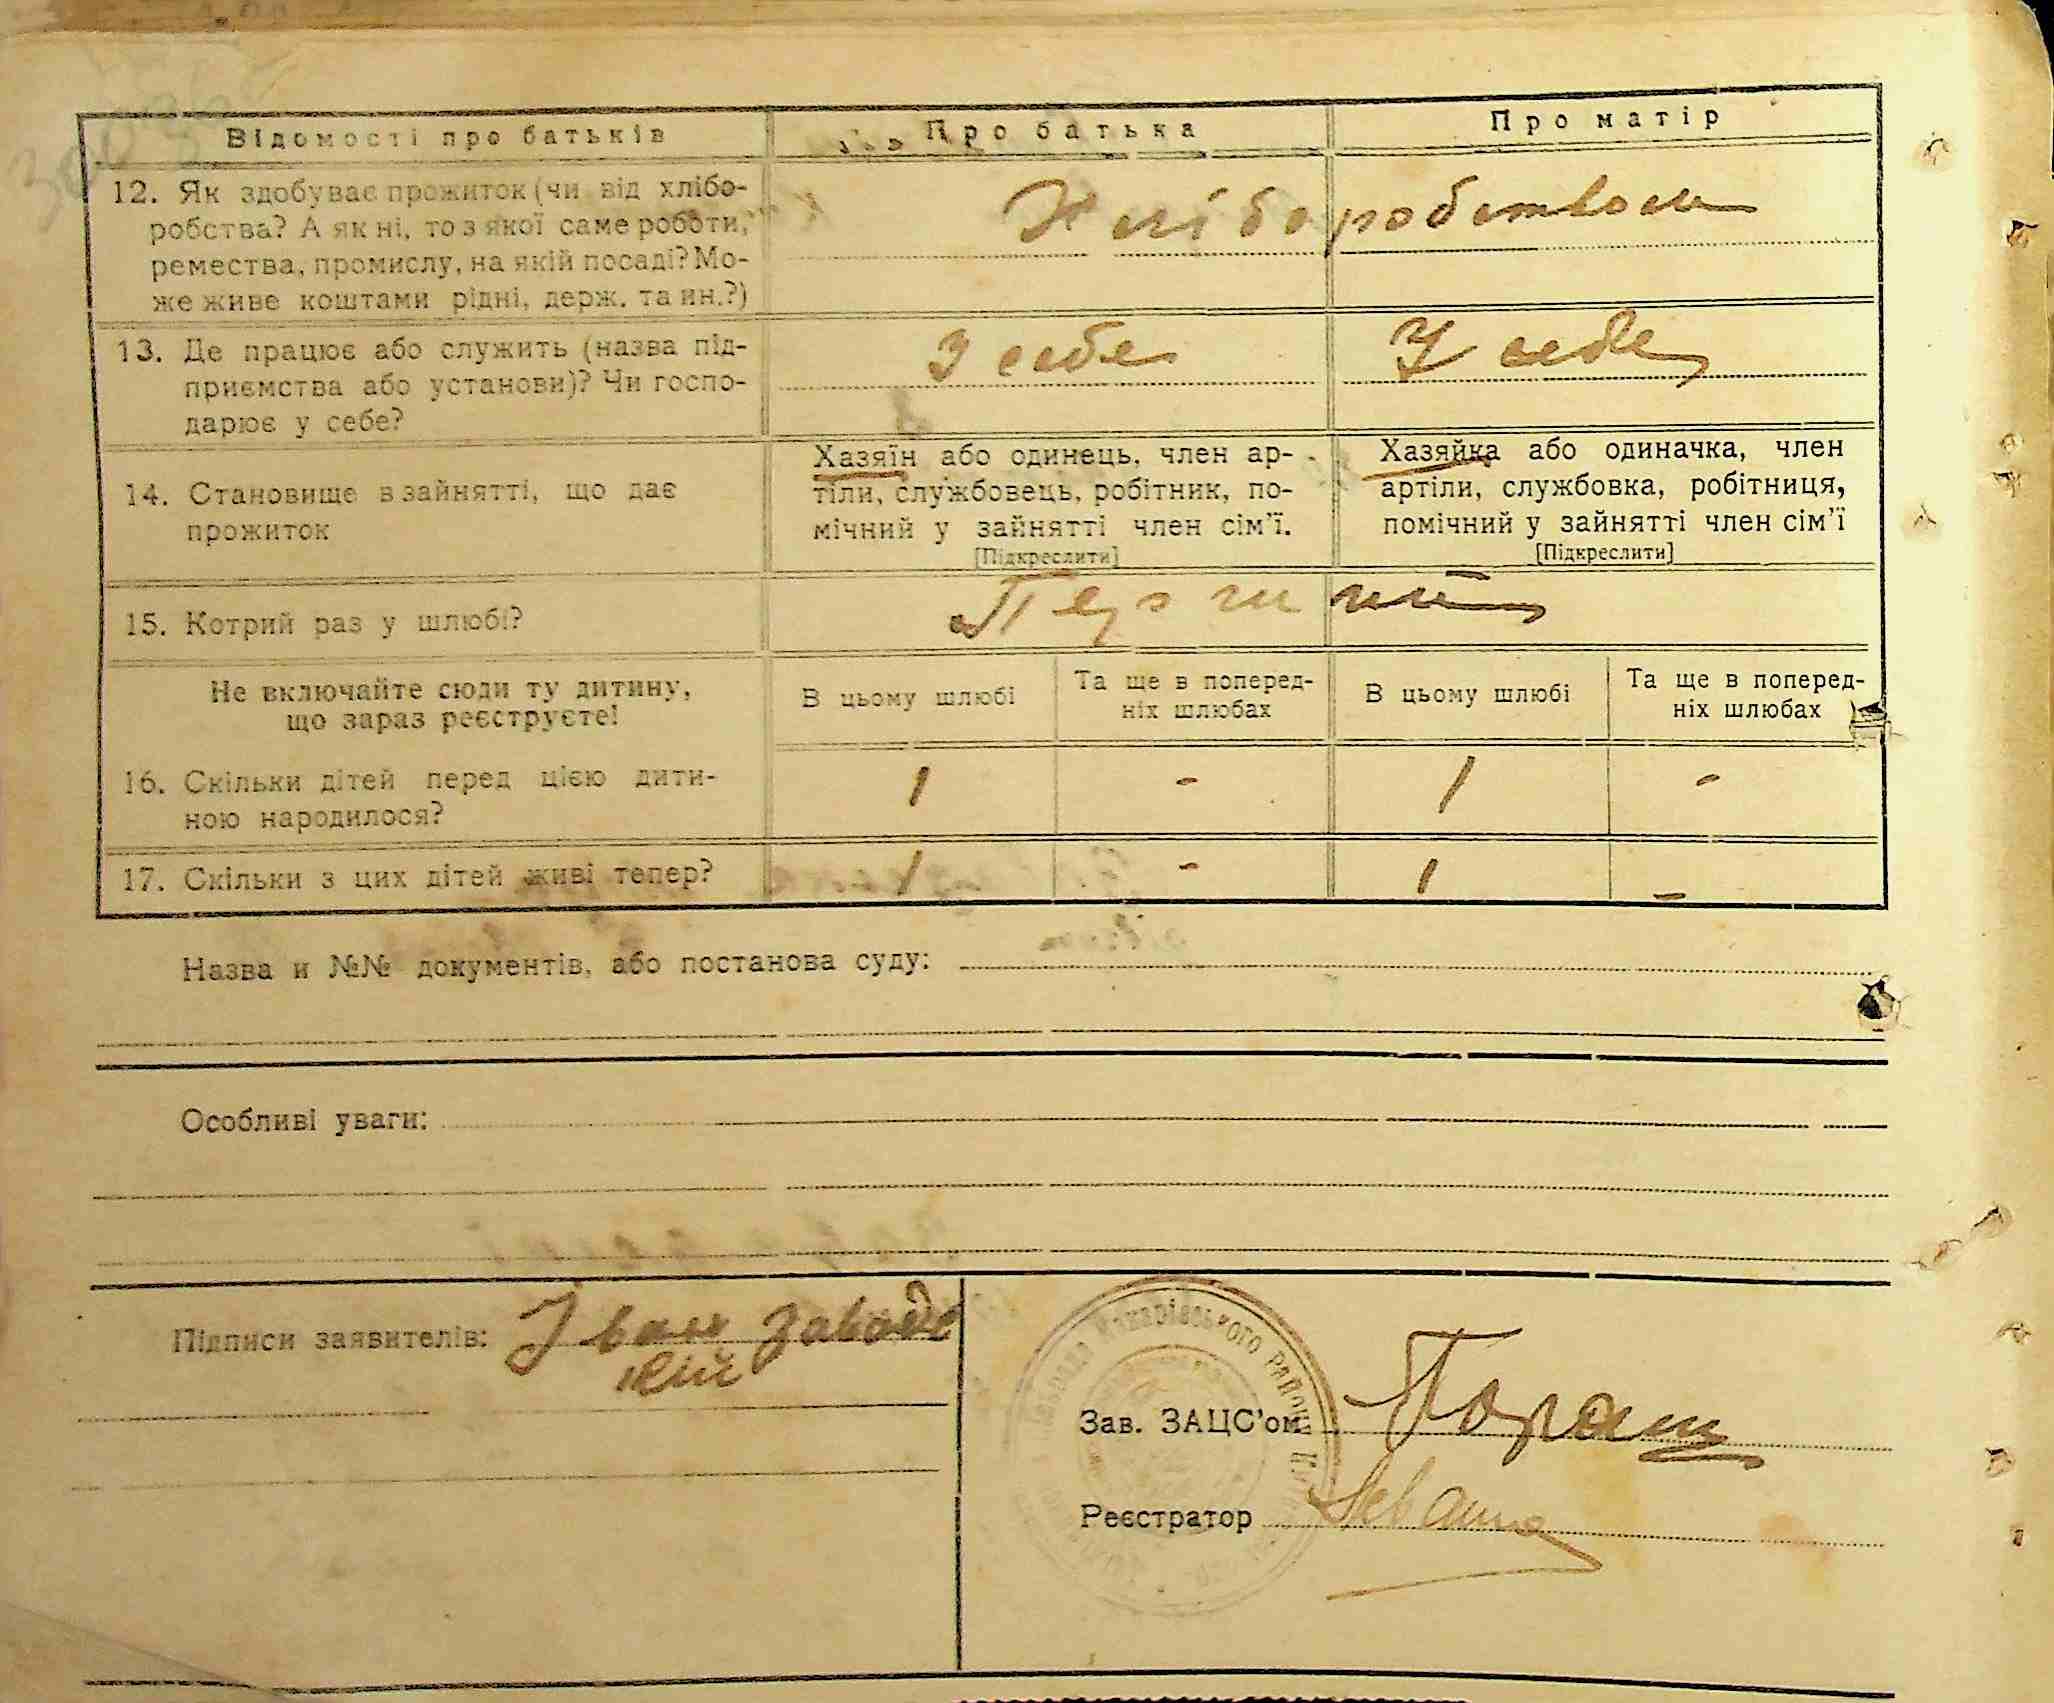 Відомості про батьків Про батька Про матір
12. Як здобуває прожиток (чи від хлібо-
робства? А як ні, то з якої саме роботи,
ремества, промислу, на якій посаді? Мо-
же живе коштами рідні, держ. та ин.?)
Хліборобством
13. Де працює або служить (назва під-
приємства або установи)? Чи госпо-
дарює у себе?
У себе У себе
14. Становище в зайнятті, що дає
прожиток
Хазяїн або одинець, член ар-
тіли, службовець, робітник, по-
мічний у зайнятті член сім’ї.
[Підкреслити]
Хазяйка або одиначка, член
артіли, службовка, робітниця,
помічний у зайнятті член сім’ї
[Підкреслити]
15. Котрий раз у шлюбі?
Не включайте сюди ту дитину,
що зараз реєструєте!
В цьому шлюбі
Та ще в поперед-
ніх шлюбах
В цьому шлюбі
Та ще в поперед-
ніх шлюбах
16. Скільки дітей перед цією дити-
ною народилося?
1 - 1 -
17. Скільки з цих дітей живі тепер? 1 - 1 -
Назва и №№ документів, або постанова суду:
Особливі уваги:
Підписи заявителів: Іван Завадс
кий
Макарівського району
Зав. ЗАЦС’ом
Реєстратор